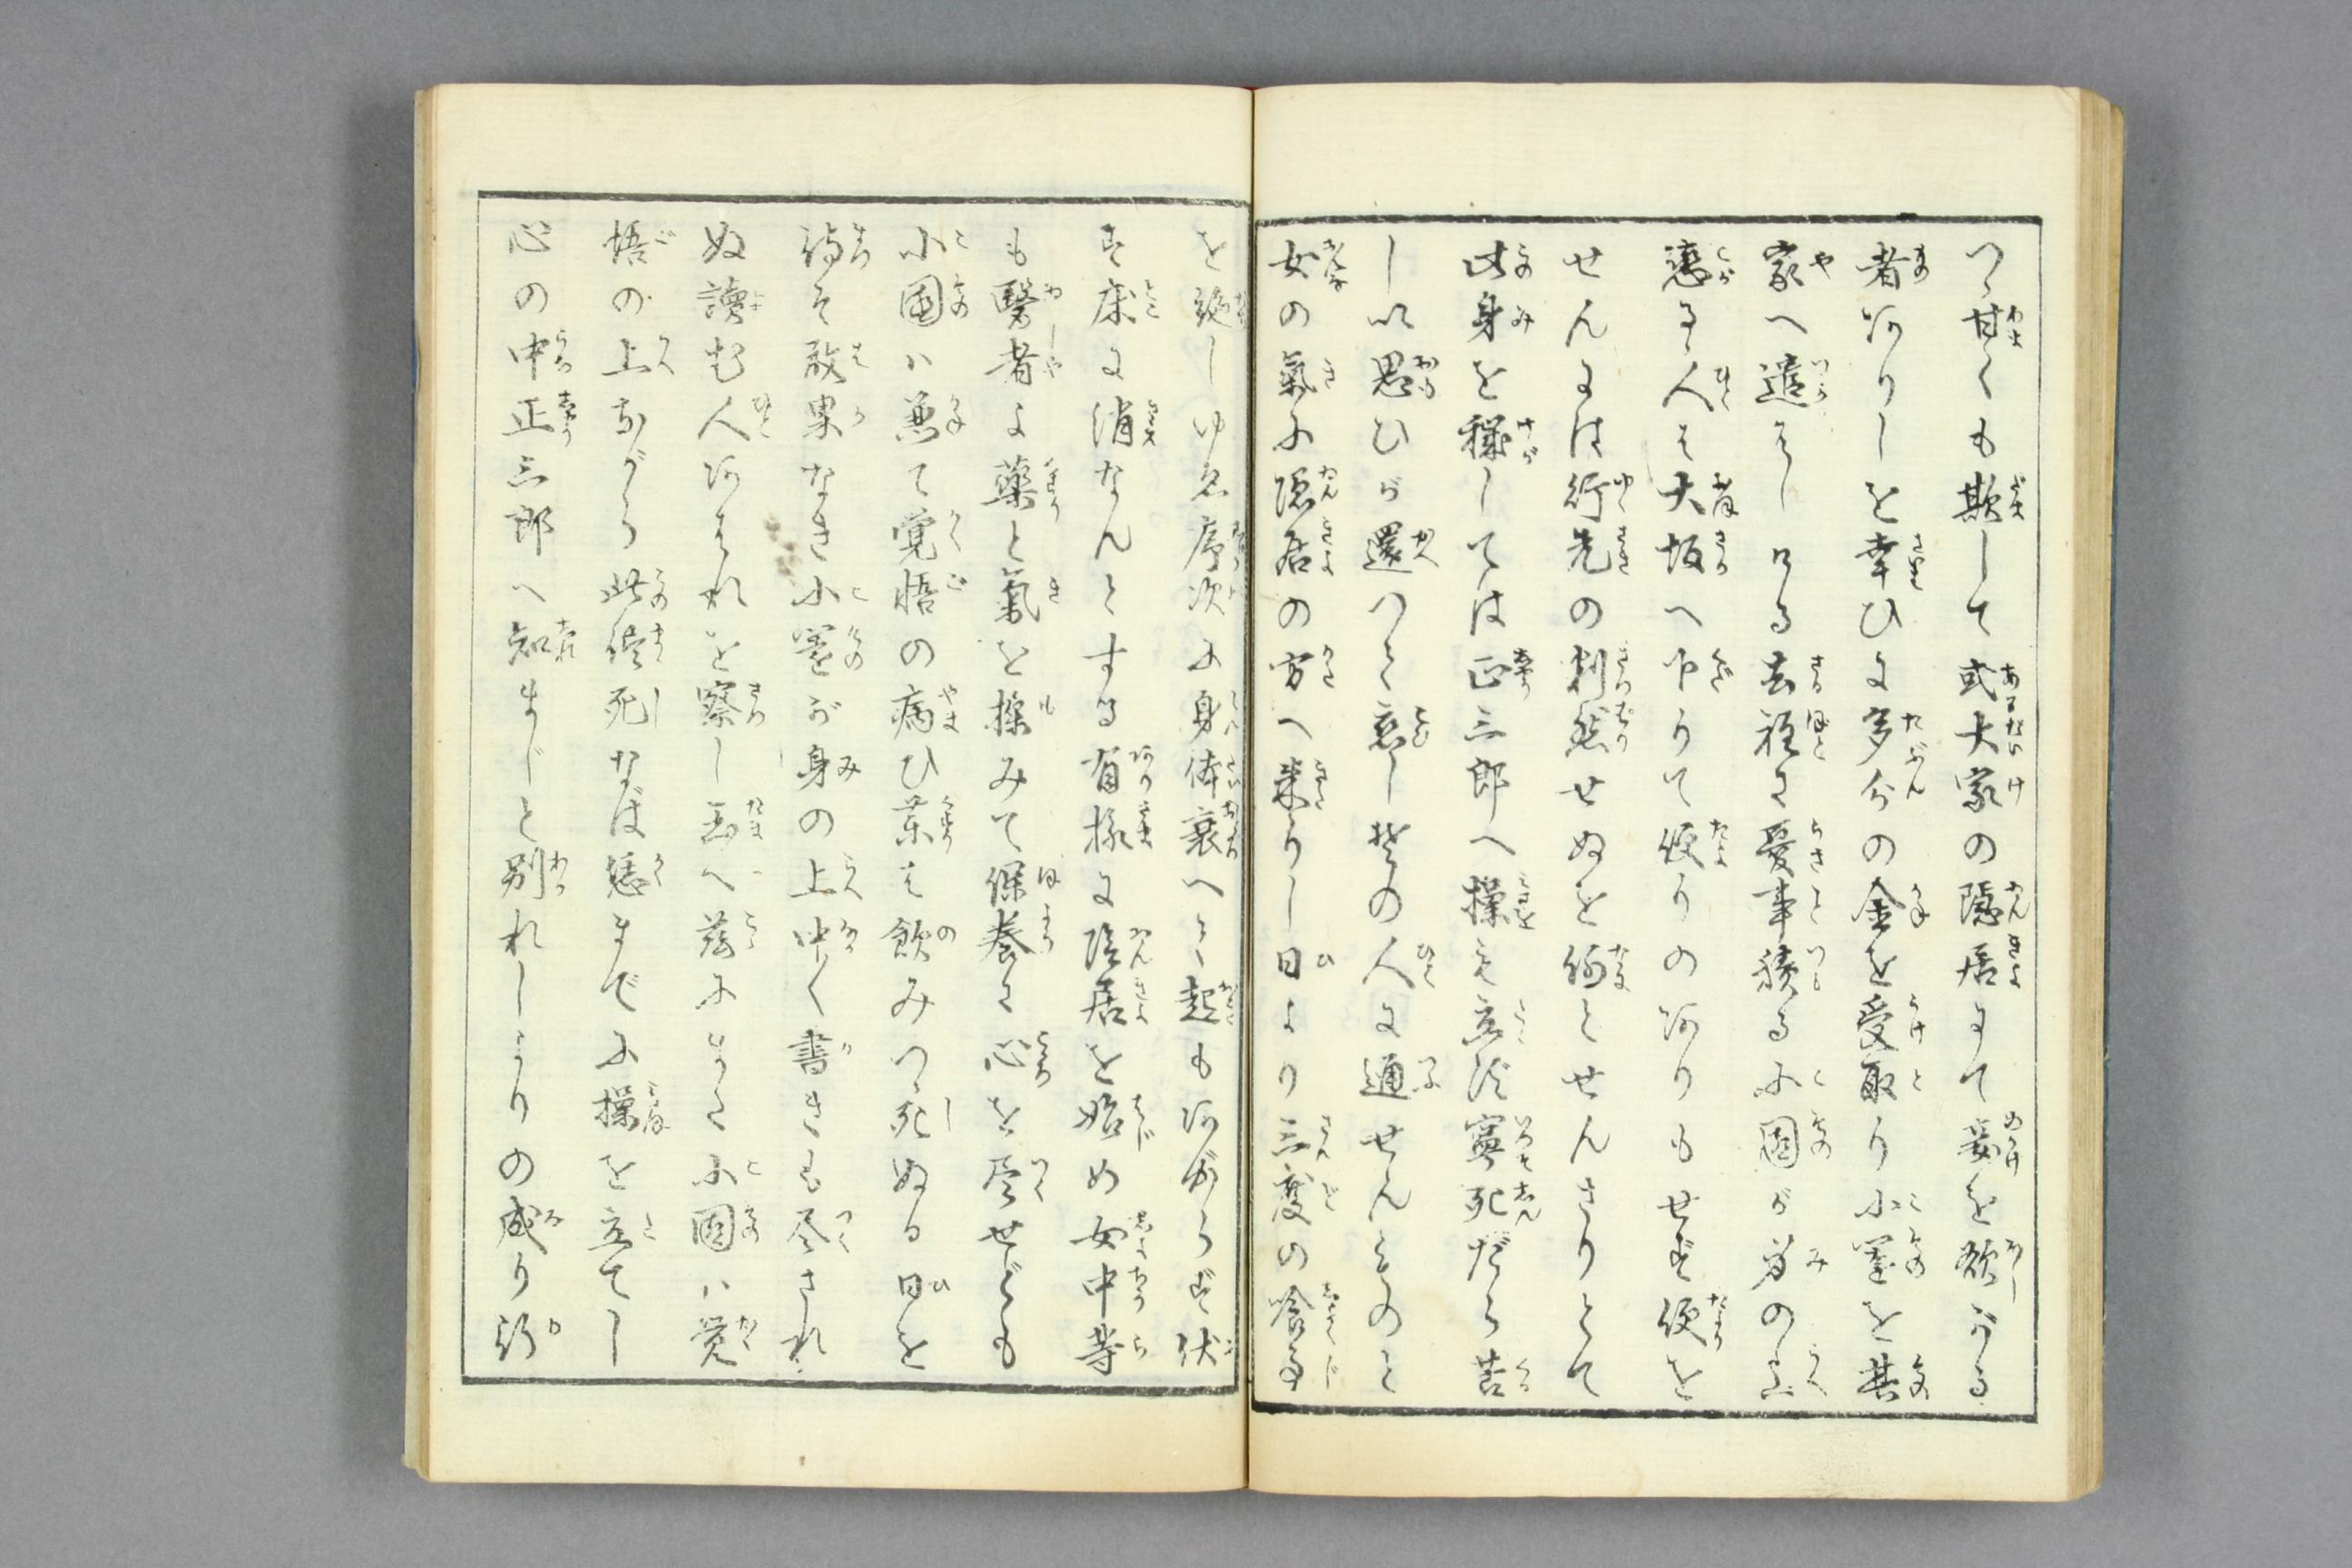 つゝ甘くも欺して或大家の隠居にて妾を欲がる
者ありしを幸ひに多分の金を受取り小園を其
家へ遣はしける去程に憂事積る小園が身の上
恋る人は大坂へ下りて便りのありもせず便を
せんには行先の判然せぬを何とせんさりとて
此身を穢しては正三郎へ操も立ず寧死だら苦
しい思ひが還つて恋し其の人に通せんものと
女の氣に隠居の方へ来りし日より三度の食事
を絶しゆゑ序次に身体衰へて起もあがらず伏
す床に消なんとする有様に隠居を始め女中等
も醫者よ薬と氣を操みて保養に心を尽せども
小園ハ兼て覚悟の病ひ薬は飲みつゝ死ぬる日を
待そ敢果なき小園が身の上中〻書きも尽され
ぬ讀む人あはれを察し玉へ茲にまた小園ハ覚
悟の上ながら此儘死なば恁までに操を立てし
心の中正三郎へ知まじと別れしよりの成り行